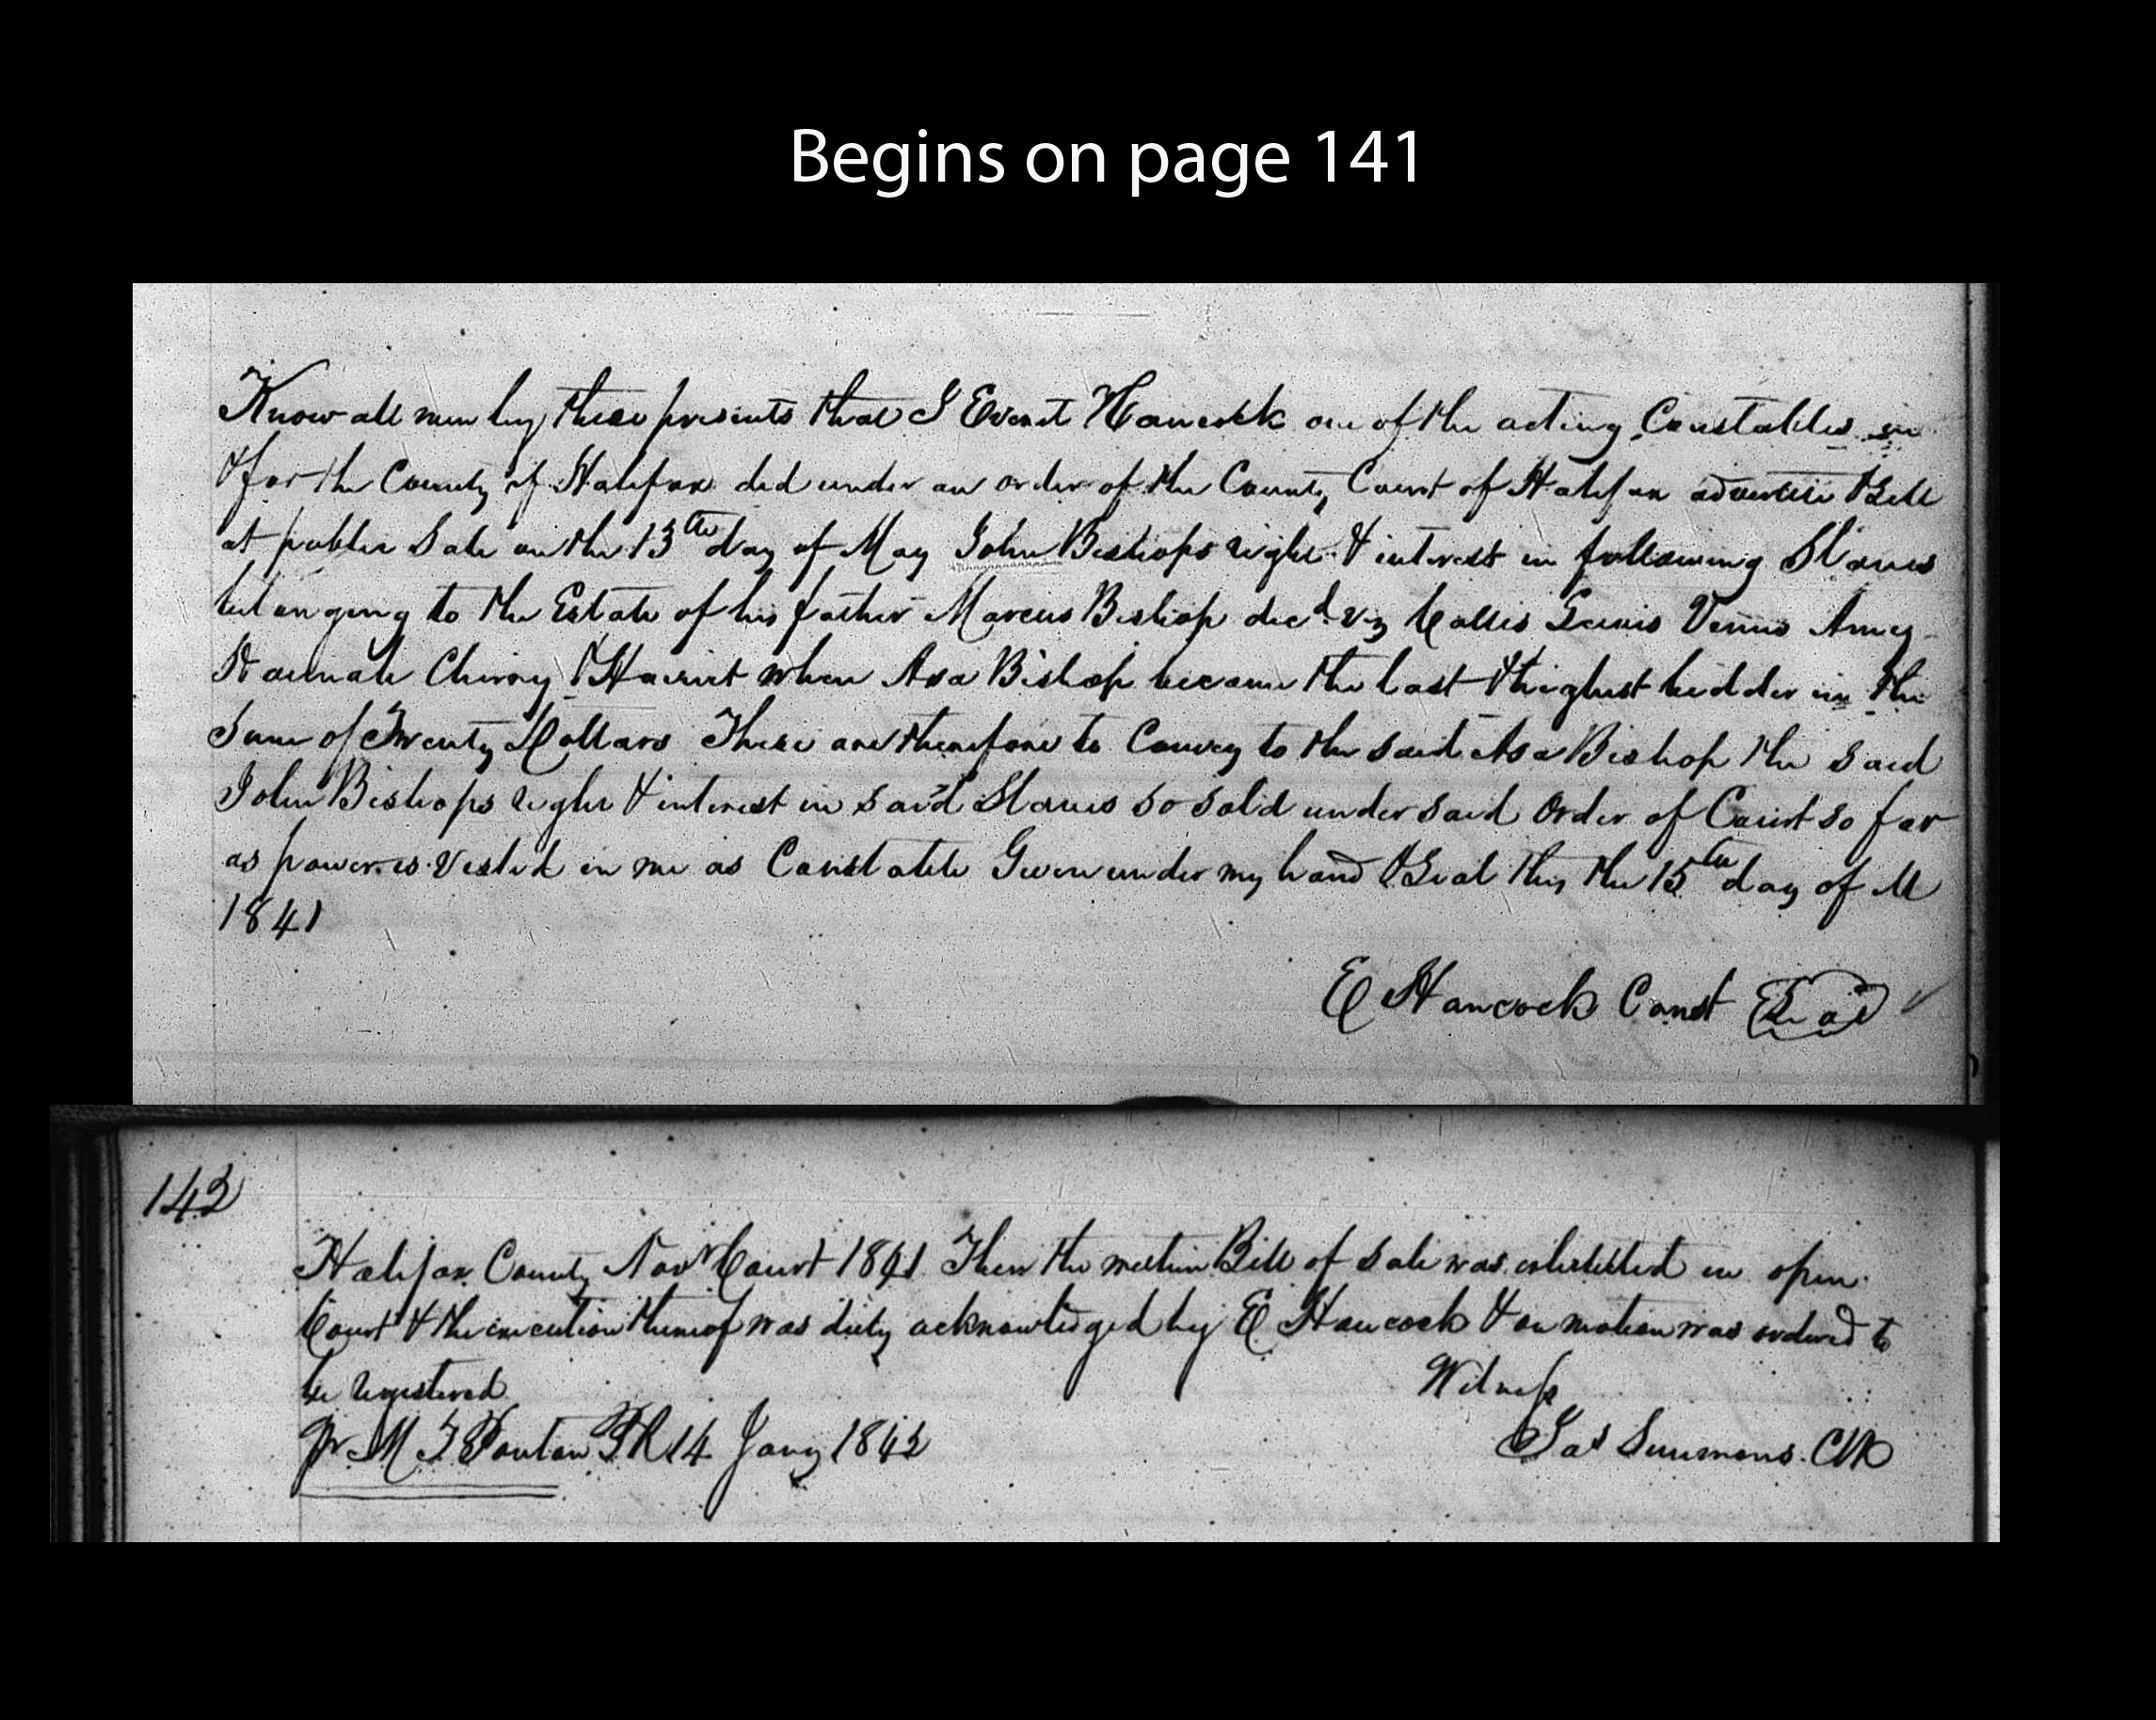 Begins on page 141
Know all men by these presents that I Everet Hancock one of the acting Constables in
& for the County of Halifax did under an order of the County Court of Halifax advertise & Sell
at public Sale on the 13th day of May John Bishops right & interest in following Slaves
belonging to the Estate of his father Marcus Bishop decd. viz Venus Amey
Hannah Cherry & Harriet when Asa Bishop became the last & highest bidder in the
Sum of Twenty Dollars These are therefore to Convey to the said Asa Bishop the said
John Bishops right & interest in said Slaves so sold under said Order of Court so far
as power is vested in me as Constable Given under my hand & Seal this the 15th day of M
1841
E Hancock Const Seal
142
Halifax County Novr Court 1841 Then the within Bill of Sale was exhibited in open
Court & the execution thereof was duly acknowledged by E Hancock & on motion was ordered to
be registered
Witness
Pr M T Ponton P R 14 Jany 1842
Jas Simmons Clk